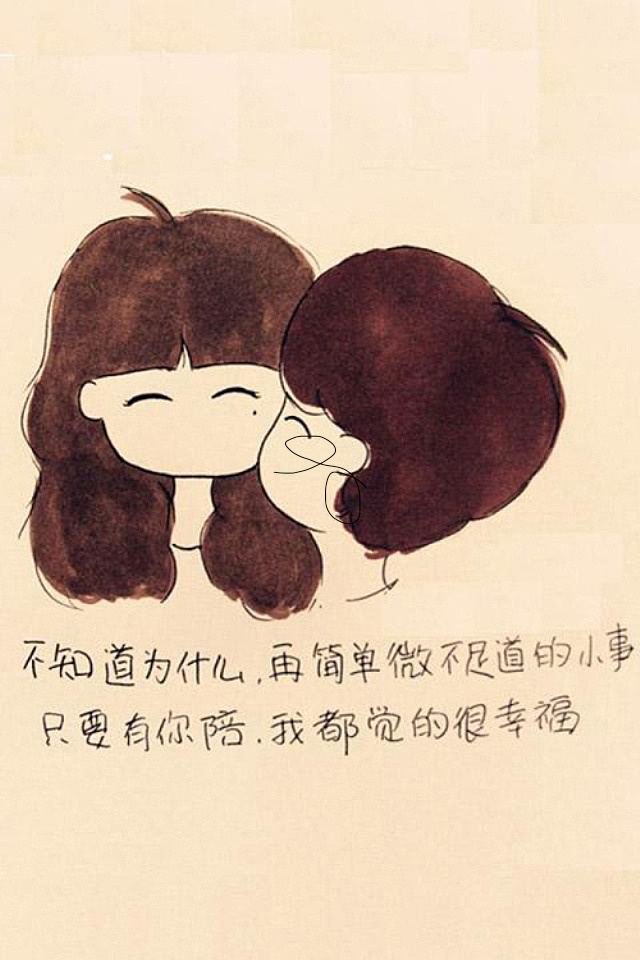 不知道为什么,再简单微不足道的小事
只要有你陪.我都觉的很幸福